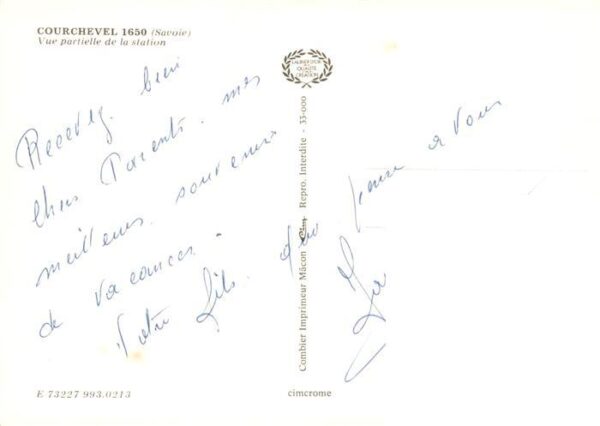 COURCHEVEL 1650 (Savoie)
Vue partielle de la station
LABEL D'OR
QUALITÉ
CRÉATION
Recevez bien
Chers Parents. mes
meilleurs souvenirs
de vacances.
Votre fils. qui pense à vous
Combier Imprimeur Mâcon Cim Repro. Interdite - 35-000
E 73227 993.0213
cimcrome